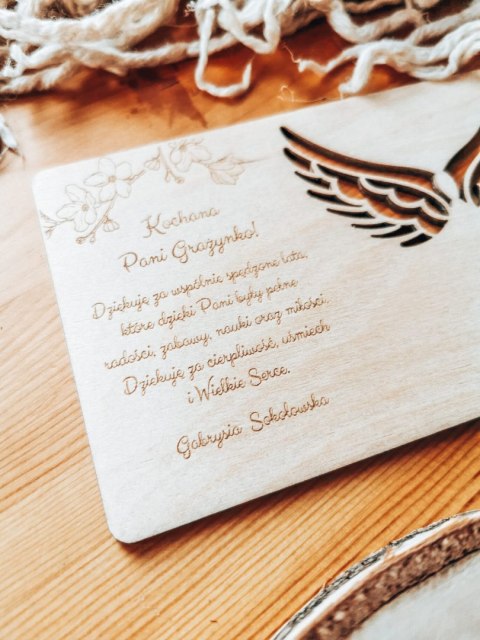 Kochana
Pani Grażynko!
Dziękuję za wspólnie spędzone lata,
które dzięki Pani były pełne
radości, zabawy, nauki oraz miłości.
Dziękuję za cierpliwość, uśmiech
i Wielkie Serce.
Gabrysia Sokołowska